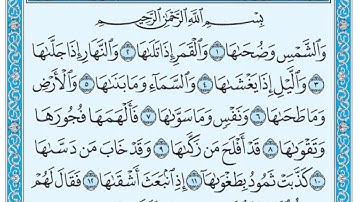 بِسْمِ اللَّهِ الرَّحْمَٰنِ الرَّحِيمِ
وَالشَّمْسِ وَضُحَىٰهَا ١ وَالْقَمَرِ إِذَا تَلَىٰهَا ٢ وَالنَّهَارِ إِذَا جَلَّىٰهَا
٣ وَاللَّيْلِ إِذَا يَغْشَىٰهَا ٤ وَالسَّمَآءِ وَمَا بَنَىٰهَا ٥ وَالْأَرْضِ
وَمَا طَحَىٰهَا ٦ وَنَفْسٍ وَمَا سَوَّىٰهَا ٧ فَأَلْهَمَهَا فُجُورَهَا
وَتَقْوَىٰهَا ٨ قَدْ أَفْلَحَ مَن زَكَّىٰهَا ٩ وَقَدْ خَابَ مَن دَسَّىٰهَا
١٠ كَذَّبَتْ ثَمُودُ بِطَغْوَىٰهَا ١١ إِذِ انبَعَثَ أَشْقَىٰهَا ١٢ فَقَالَ لَهُمْ